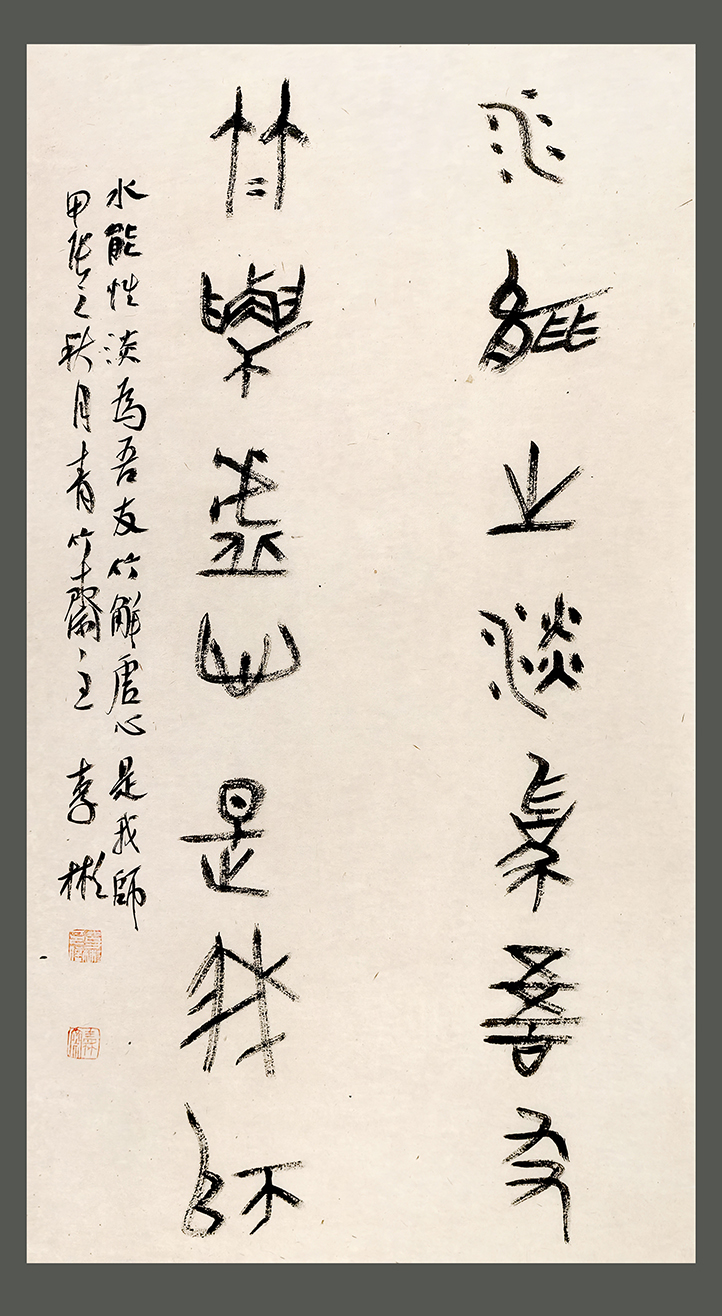 水能性淡為吾友
竹解虛心是我師
水能性淡為吾友竹解虛心是我師
甲辰之秋月青竹齋主 李彬